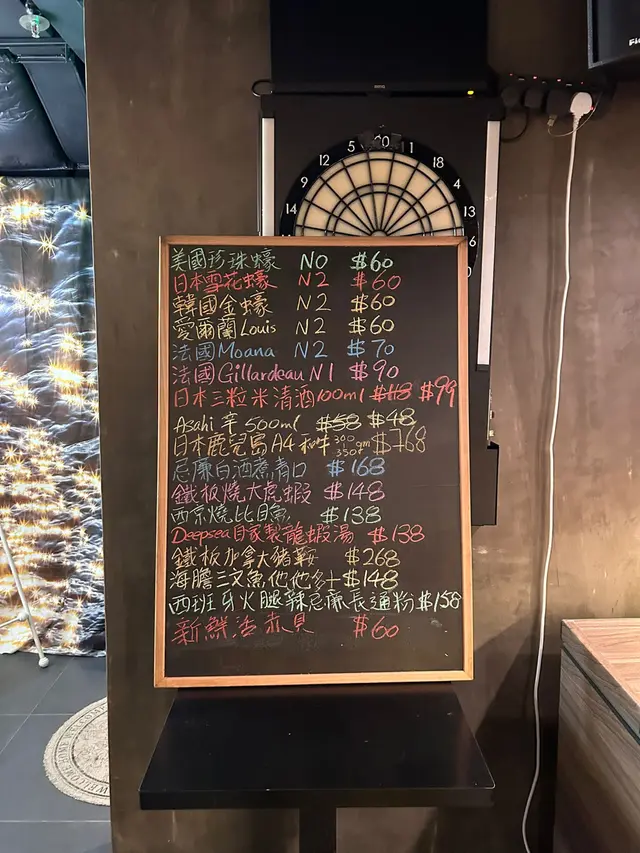 5 20 11
12 18
9 4
14 13
6
美國珍珠蠔 NO $60
日本雪花蠔 N2 $60
韓國金蠔 N2 $60
愛爾蘭Louis N2 $60
法國Moana N2 $70
法國Gillardeau N1 $90
日本三粒米清酒100ml $118 $99
Asahi 羊 500ml $58 $48
日本鹿兒島A4和牛 300gm 350gm $768
忌廉白酒煮青口 $168
鐵板燒大虎蝦 $148
西京燒比目魚 $138
Deepsea自家製龍蝦湯 $138
鐵板加拿大豬鞍 $268
海膽三文魚他他多士 $148
西班牙火腿辣忌廉長通粉 $158
新鮮活赤貝 $60